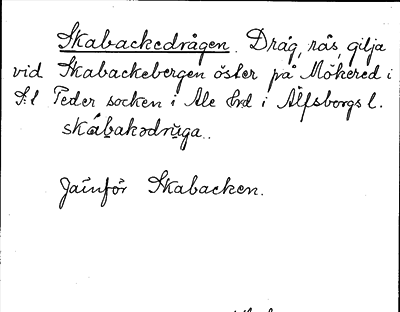 Skabackedrågen. Dråg, rås, gilja
vid Skabackebergen öster på Mökered i
S:t Peder socken i Ale hrd i Älfsborgs l.
skábakədruga.
Jämför Skabacken.